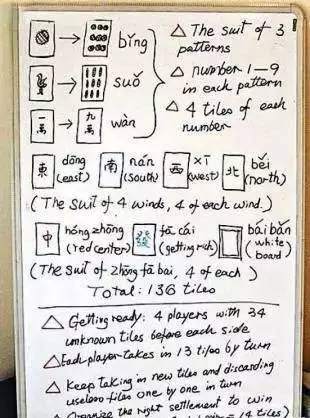 → bǐng △ The suit of 3 patterns
→ suǒ △ number 1–9 in each pattern
一萬 → 九萬 wàn △ 4 tiles of each number
東 dōng (east) 南 nán (south) 西 xī (west) 北 běi (north)
(The suit of 4 winds, 4 of each wind.)
中 hóng zhōng (red center) fā cái (getting rich) bái bǎn (white board)
(The suit of zhōng fā bái, 4 of each)
Total: 136 tiles
△ Getting ready: 4 players with 34
unknown tiles before each side
△ Each player takes in 13 tiles by turn
△ Keep taking in new tiles and discarding
useless tiles one by one in turn
Organize the right settlement to win
14 tiles)